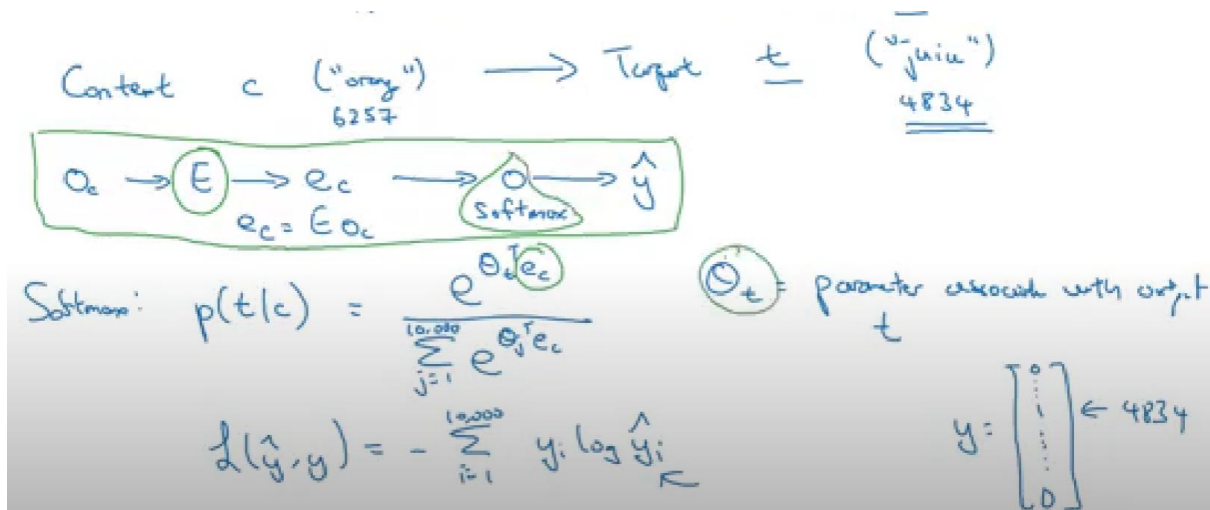 Content c ("orang") → Target t ("juice")
6257 4834
O_c → E → e_c → o → ŷ
Softmax
e_c = E O_c
Softmax: p(t|c) = e^{θ_t^T e_c} / Σ_{j=1}^{10,000} e^{θ_j^T e_c}
θ_t = parameter associate with output t
L(ŷ,y) = - Σ_{i=1}^{10,000} y_i log ŷ_i
y = [0 ⋮ 1 ⋮ 0] ← 4834